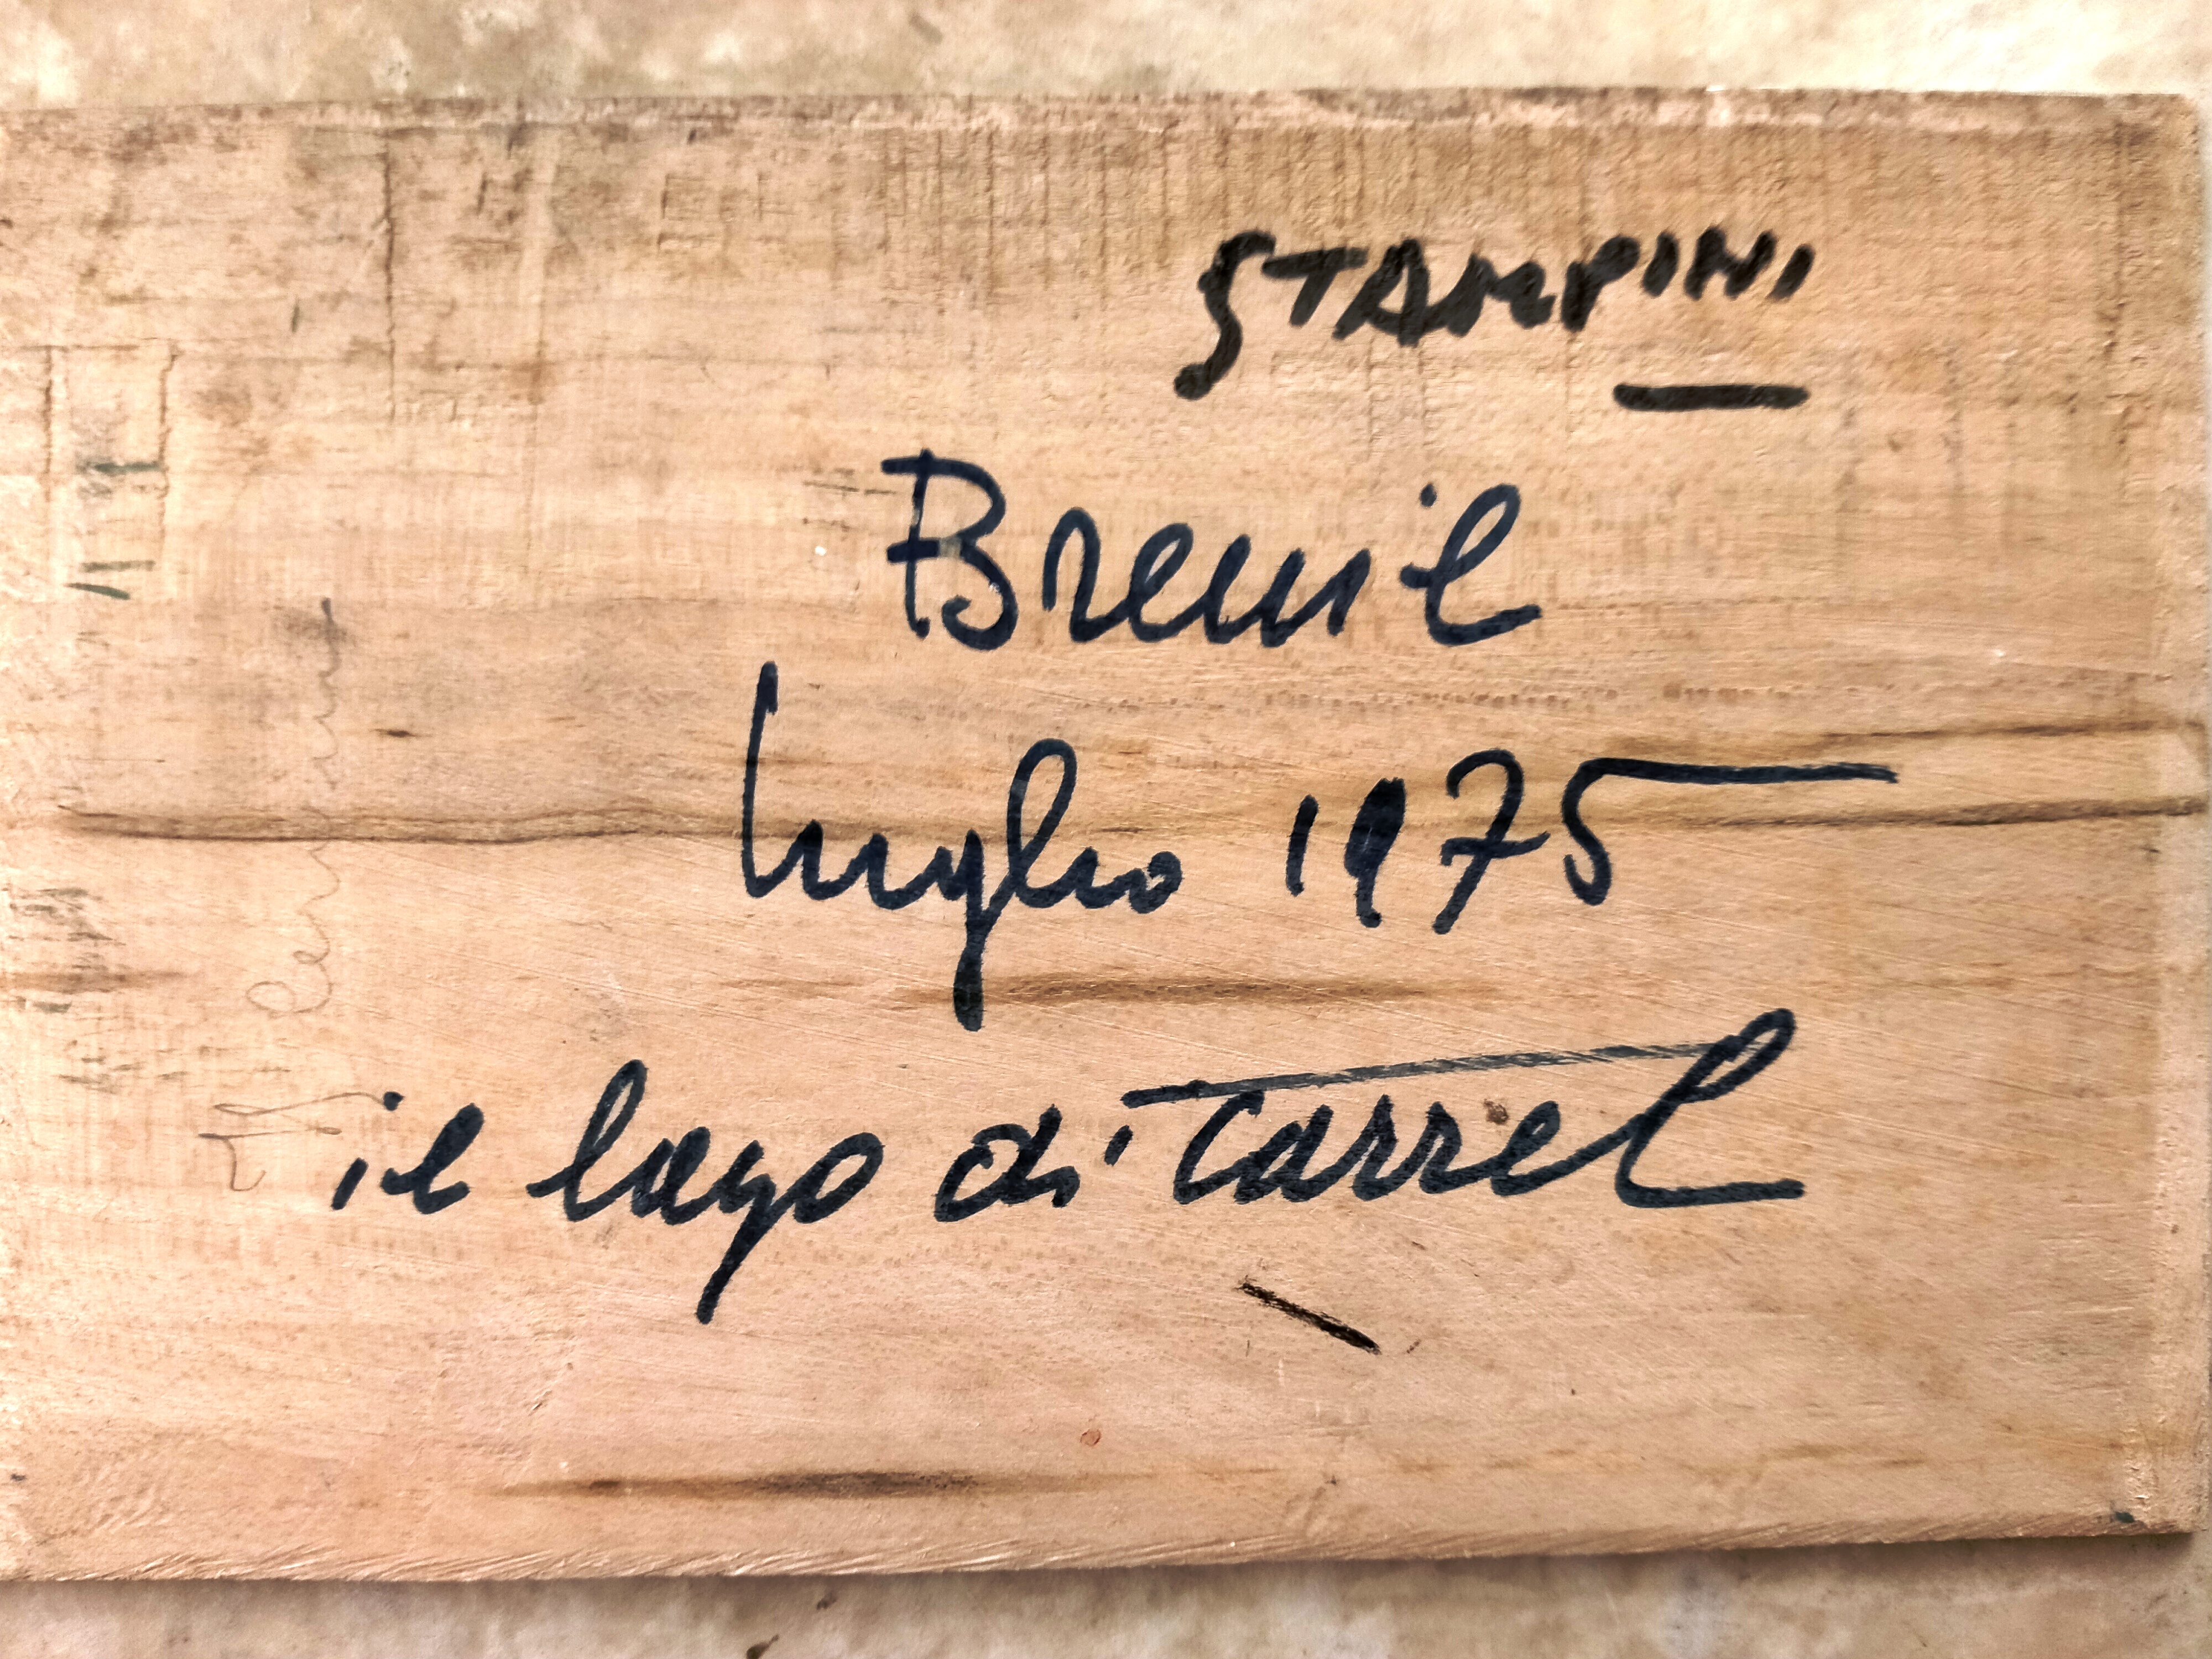 STAMPINI
Breuil
luglio 1975
il lago di Carrel